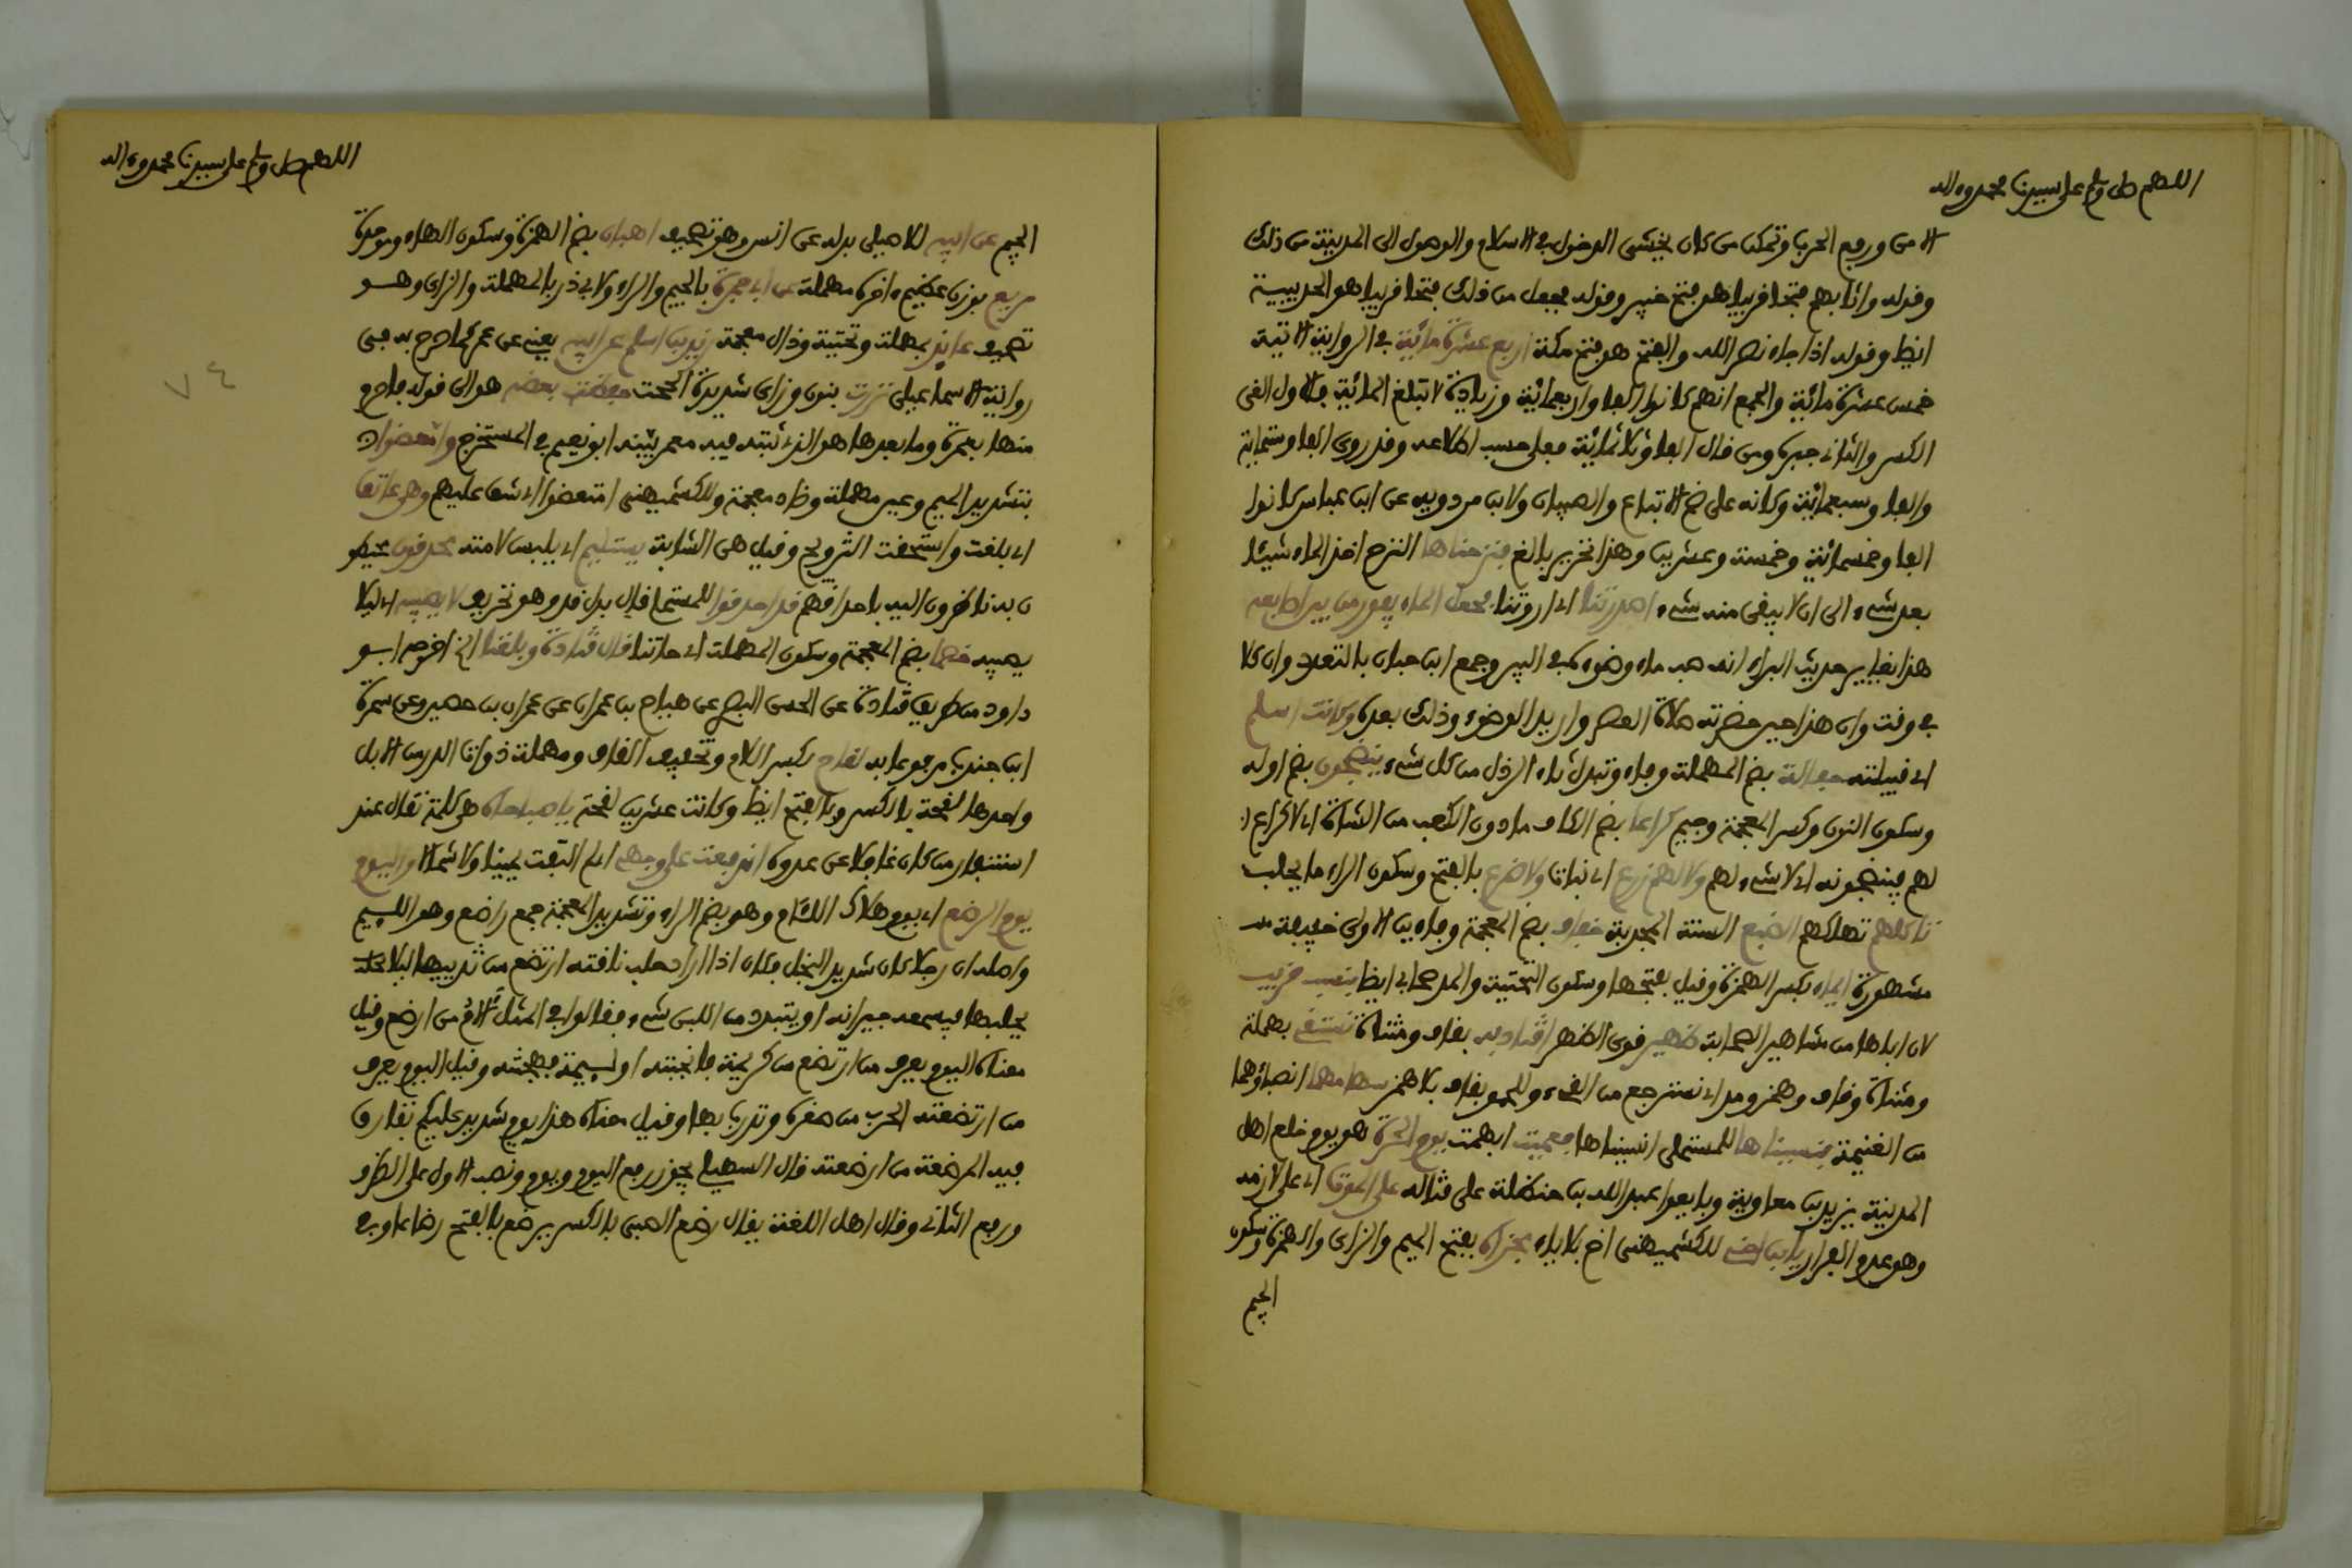 اللهم صل وسلم على سيدنا محمد وءاله
الامن ورفع الحرب وتمكن من كان يخشى الدخول في الاسلام والوصول الى المدينة من ذلك
وقوله واثابهم فتحا قريبا هو فتح خيبر وقوله فجعل من دون ذلك فتحا قريبا هو الحديبية
ايضا وقوله اذا جاء نصر الله والفتح هو فتح مكة اربع عشرة مائية في الرواية الاتية
خمس عشرة مائية والجمع انهم كانوا الفا واربعمائية وزيادة لا تبلغ المائية فالاول الغى
الكسر والثاني جبره ومن قال الفا وثلاثمائية فعلى حسب اطلاعه وقد روى الفا وستماية
والفا وسبعمائية وكانه على ضم الاتباع والصبيان ولابن مردويه عن ابن عباس كانوا
الفا وخمسمائية وخمسة وعشرين وهذا تحرير بالغ فنزحناها النزح اخذ الماء شيئا
بعد شيء الى ان لا يبقى منه شيء اصدرتنا اي اروتنا فجعل الماء يفور من بين اصابعه
هذا يغاير حديث البراء انه صب ماء وضوءه في البير وجمع ابن حبان بالتعدد وان كلا
في وقت وان هذا حين حضرته صلاة العصر واريد الوضوء وذلك بعده وكانت اسلم
اي قبيلته حفالة بضم المهملة وفاء وتبدل ثاء الرذل من كل شيء ينضجون بضم اوله
وسكون النون وكسر المعجمة وجيم كراعا بضم الكاف مادون الكعب من الشاة اي لا كراع
لهم فينضجونه اي لا شيء لهم ولا لهم زرع اي نبات ولا ضرع بالفتح وسكون الراء ما يحلب
تاكلهم تهلكهم الضبع السنة المجدبة خفاف بضم المعجمة وفاءين الاولى خفيفة
مشهورة ايماء بكسر الهمزة وقيل بفتحها وسكون التحتية والمد صحابي ايضا بنسب قريب
لان اباها من مشاهير الصحابة ظهير قوي الظهر اقتاديه بقاف ومثناة نستفيء بمهملة
ومثناة وفاء وهمز ومد اي نسترجع من الفيء وللحموي بقاف بلا همز سهامهما انصباؤهما
من الغنيمة فنسيناها للمستملي انسيناها فعميت ابهمت يوم الحرة هو يوم خلع اهل
المدينة يزيد بن معاوية وبايعوا عبد الله بن حنظلة على قتاله على الموت اي على لازمه
وهو عدم الفرار يابن اخي للكشميهني اخ بلا ياء مجزاة بفتح الميم والزاي والهمزة وسكون
الجيم
اللهم صل وسلم على سيدنا محمد وءاله
الجيم عن ابيه للاصيلي بدله عن انس وهو تصحيف اهبان بضم الهمزة وسكون الهاء وموحدة
مربع بوزن عظيم ءاخره مهملة عن ابي جمرة بالجيم والراء ولابي ذر بالمهملة والزاي وهو
تصحيف عايذ بمهملة وتحتية وذال معجمة زيد بن اسلم عن ابيه يعني عن عمر كما صرح به في
رواية الاسماعيلي نزرت بنون وزاي شديدة الححت حفظت بعضه هو الى قوله فاحرم
منها بعمرة وما بعدها هو الذي ثبته فيه معمر بينه ابو نعيم في المستخرج وامعضوا
بتشديد الميم وعين مهملة وضاد معجمة وللكشميهني امتعضوا اي شق عليهم وهي عاتق
اي بلغت واستحقت التزويج وقيل هي الشابة يستليم اي يلبس لامته محدقون محيطو
ن به ناظرون اليه باحداقهم قد احدقوا للمستملي قال بدل قد وهو تحريف لا يصيبه اي ليلا
يصيبه خصما بضم المعجمة وسكون المهملة اي جانبا قال قتادة وبلغنا الخ اخرجه ابو
داود من طريق قتادة عن الحسن البصري عن هياج بن عمران عن عمران بن حصين وعن سمرة
ابن جندب مرفوعا به لقاح بكسر اللام وتخفيف القاف ومهملة ذوات الدر من الابل
واحدها لقحة بالكسر وبالفتح ايضا وكانت عشرين لقحة ياصباحاه هي كلمة تقال عند
استنفار من كان غافلا عن عدوه اندفعت على وجهي اي لم التفت يمينا ولا شمالا واليوم
يوم الرضع اي يوم هلاك اللئام وهو بضم الراء وتشديد المعجمة جمع راضع وهو اللييم
واصله ان رجلا كان شديد البخل فكان اذا اراد حلب ناقته ارتضع من ثدييها ليلا
يحلبها فيسمعه جيرانه او يتبدد من اللبن شيء فقالوا في المثل الام من ارضع وقيل
معناه اليوم يعرف من ارتضع من كريمة فانجبته او لييمة فهجنته وقيل اليوم يعرف
من ارتضعته الحرب من صغره وتدرب بها وقيل معناه هذا يوم شديد عليكم تفارق
فيه المرضعة من ارضعته قال السهيلي يجوز رفع اليوم ويوم ونصب الاول على الظرف
ورفع الثاني وقال اهل اللغة يقال رضع الصبي بالكسر يرضع بالفتح رضاعا وفي
٧٤